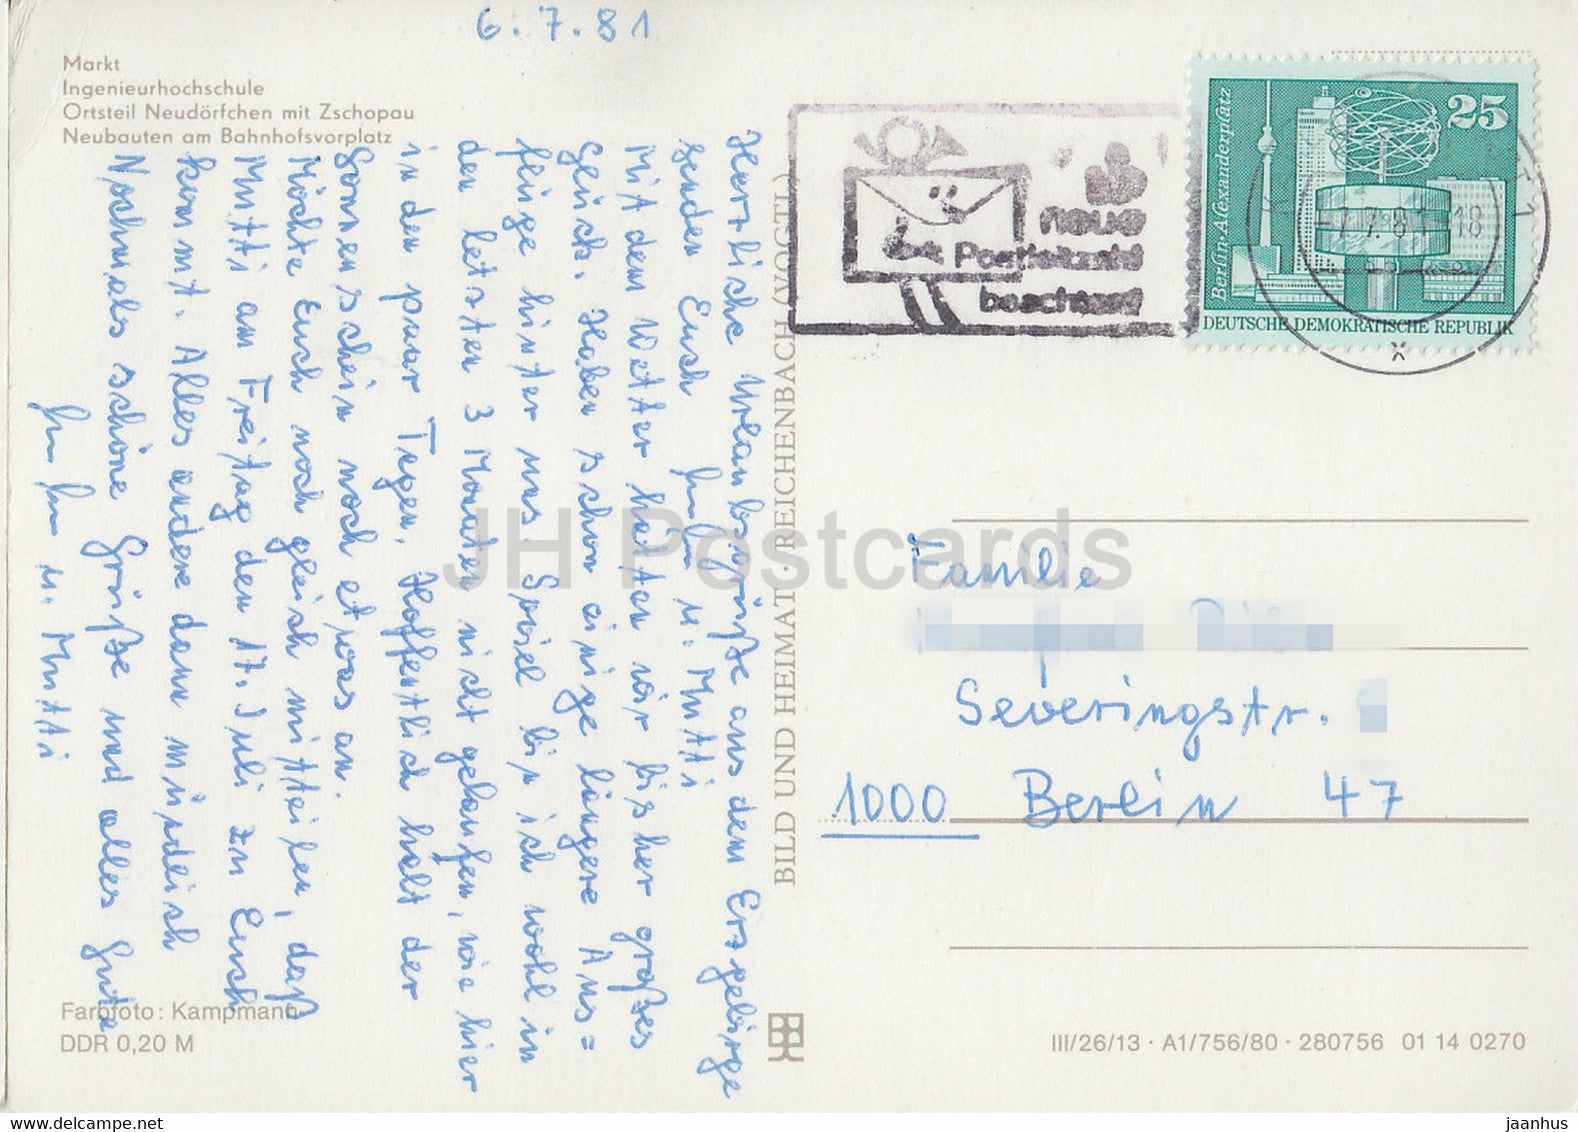 6.7.81
Markt
Ingenieurhochschule
Ortsteil Neudörfchen mit Zschopau
Neubauten am Bahnhofsvorplatz
Herzliche Urlaubsgrüße aus dem Erzgebirge
senden Euch u. Mutti
Mit dem Wetter hatten wir bisher großes
Glück. Haben schon einige längere Aus=
flüge hinter uns. Soviel bin ich wohl in
den letzten 3 Monaten nicht gelaufen, wie hier
in den paar Tagen. Hoffentlich hält der
Sonnenschein noch etwas an.
Möchte Euch noch gleich mitteilen, daß
Mutti am Freitag den 17. Juli zu Euch
kommt. Alles andere dann mündlich
Nochmals schöne Grüße und alles Gute
u. Mutti
Farbfoto: Kampmann
DDR 0,20 M
BILD UND HEIMAT · REICHENBACH (VOGTL)
neue
Postleitzahl
beachten!
Berlin-Alexanderplatz
25
DEUTSCHE DEMOKRATISCHE REPUBLIK
7.7.81-18
x
Familie
Severingstr.
1000 Berlin 47
III/26/13 · A1/756/80 · 280756 01 14 0270
JH Postcards
jaanhus
www.delcampe.net